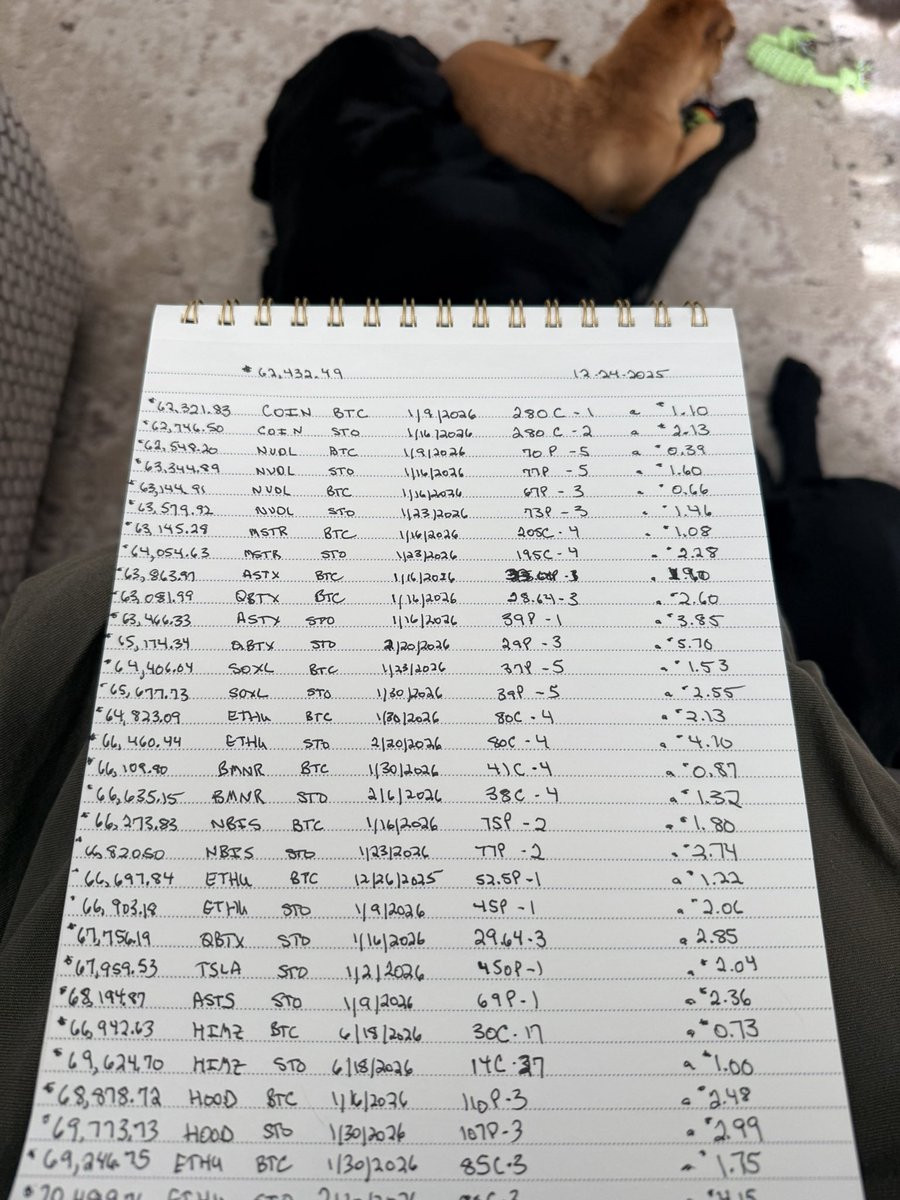 $62,432.49 12-24-2025
$62,321.83 COIN BTC 1/9/2026 280C-1 @ $1.10
$62,746.50 COIN STO 1/16/2026 280C-2 @ $2.13
$62,548.20 NVDL BTC 1/9/2026 70P-5 @ $0.39
$63,344.89 NVDL STO 1/16/2026 77P-5 @ $1.60
$63,144.91 NVDL BTC 1/16/2026 67P-3 @ $0.66
$63,579.92 NVDL STO 1/23/2026 73P-3 @ $1.46
$63,145.28 MSTR BTC 1/16/2026 205C-4 @ $1.08
$64,054.63 MSTR STO 1/23/2026 195C-4 @ $2.28
$63,863.97 ASTX BTC 1/16/2026 @ 1.90
$63,081.99 QBTX BTC 1/16/2026 28.64-3 @ $2.60
$63,466.33 ASTX STO 1/16/2026 39P-1 @ $3.85
$65,174.34 QBTX STO 2/20/2026 29P-3 @ $5.70
$64,406.04 SOXL BTC 1/23/2026 37P-5 @ $1.53
$65,677.73 SOXL STO 1/30/2026 39P-5 @ $2.55
$64,823.09 ETHU BTC 1/30/2026 80C-4 @ $2.13
$66,460.44 ETHU STO 2/20/2026 80C-4 @ $4.10
$66,109.80 BMNR BTC 1/30/2026 41C-4 @ $0.87
$66,635.15 BMNR STO 2/6/2026 38C-4 @ $1.32
$66,273.83 NBIS BTC 1/16/2026 75P-2 @ $1.80
$66,820.50 NBIS STO 1/23/2026 77P-2 @ $2.74
$66,697.84 ETHU BTC 12/26/2025 52.5P-1 @ $1.22
$66,903.18 ETHU STO 1/9/2026 45P-1 @ $2.06
$67,756.19 QBTX STO 1/16/2026 29.64-3 @ 2.85
$67,959.53 TSLA STO 1/2/2026 450P-1 @ $2.04
$68,194.87 ASTS STO 1/9/2026 69P-1 @ $2.36
$66,942.63 HIMZ BTC 6/18/2026 30C-17 @ $0.73
$69,624.70 HIMZ STO 6/18/2026 14C-27 @ $1.00
$68,878.72 HOOD BTC 1/16/2026 110P-3 @ $2.48
$69,773.73 HOOD STO 1/30/2026 107P-3 @ $2.99
$69,246.75 ETHU BTC 1/30/2026 85C-3 @ $1.75
ETHU STO